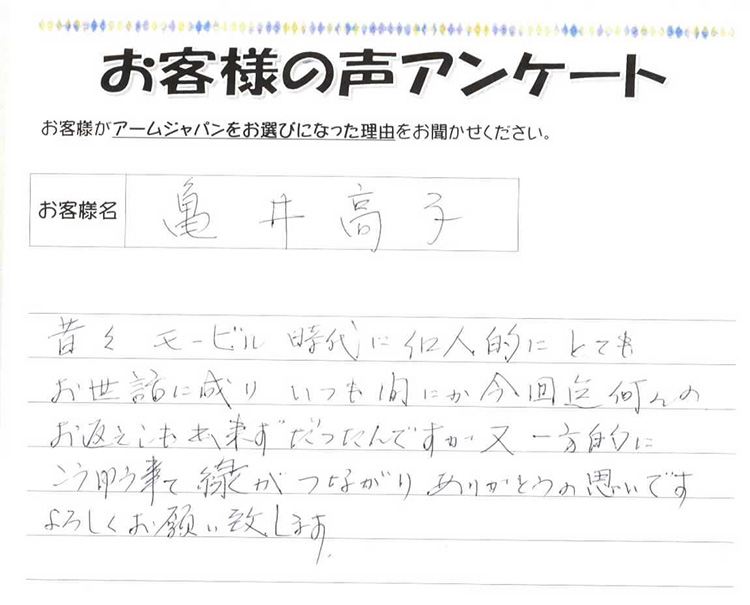 お客様の声アンケート
お客様がアームジャパンをお選びになった理由をお聞かせください。
お客様名 亀井高子
昔々 モービル 時代に個人的にとても
お世話に成り いつも間にか今回迄何んの
お返えしも出来ずだったんですが又一方的に
こう申う事で縁がつながりありがとうの思いです
よろしくお願い致します。